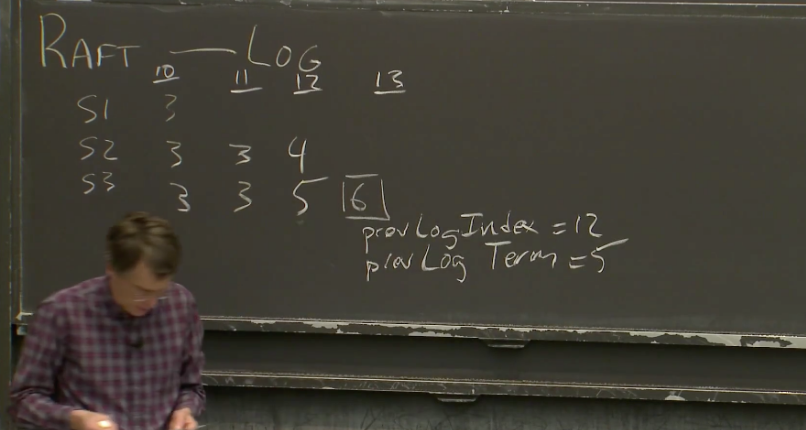 RAFT — LOG
10 11 12 13
S1 3
S2 3 3 4
S3 3 3 5 6
prevLogIndex = 12
prevLog Term = 5